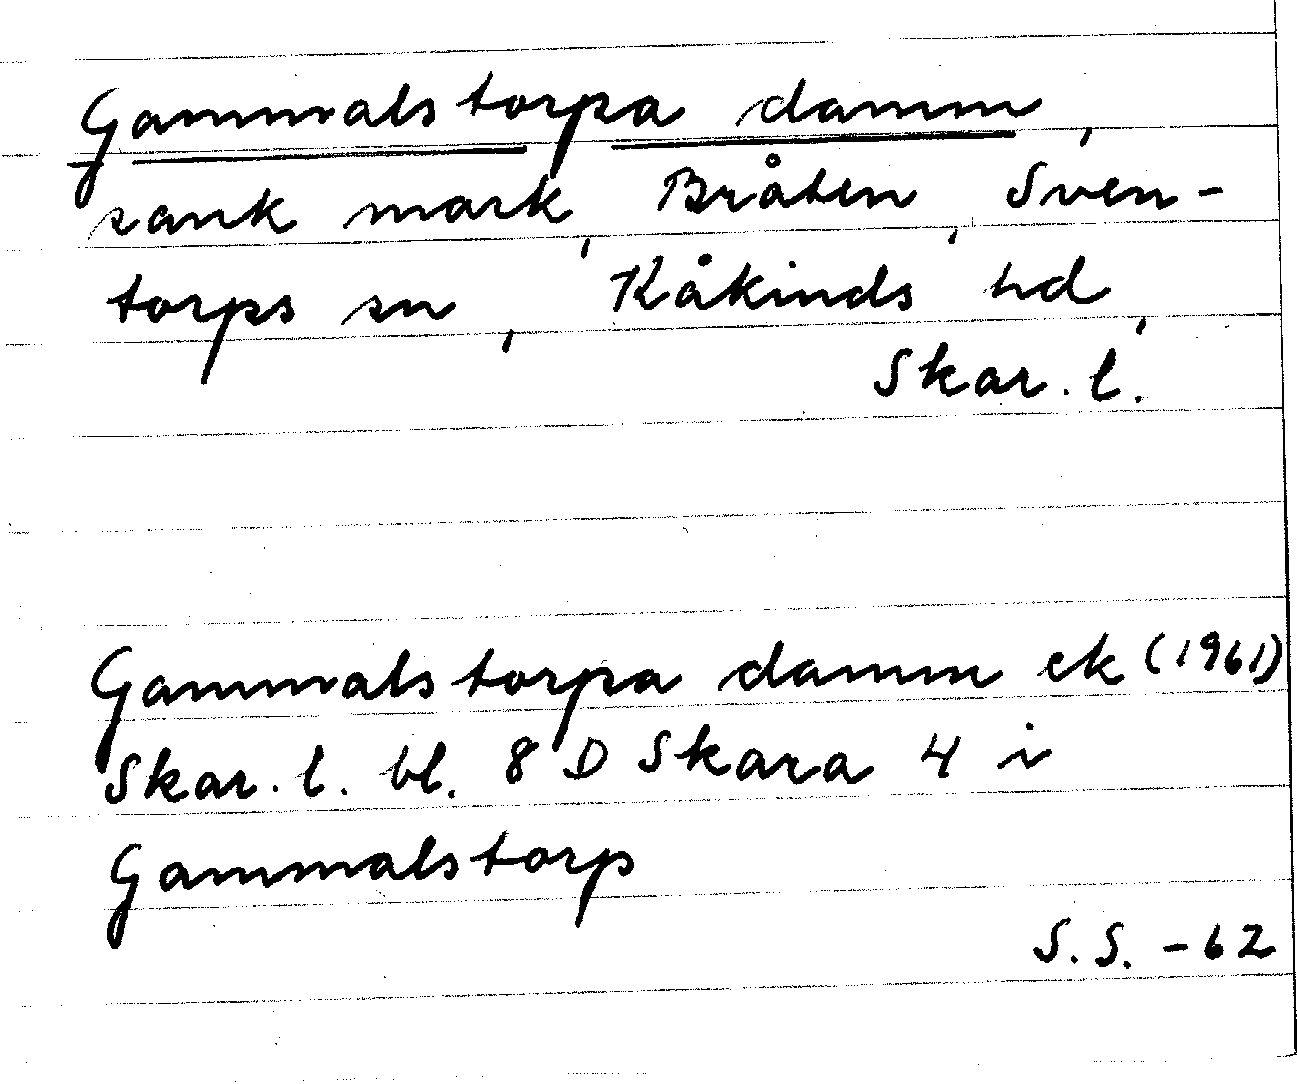 Gammalstorpa damm,
sank mark, Bråten, Sven-
torps sn, Kåkinds hd,
Skar. l.
Gammalstorpa damm ek (1961)
Skar. l. bl. 8 D Skara 4 i
Gammalstorp
S.S. -62